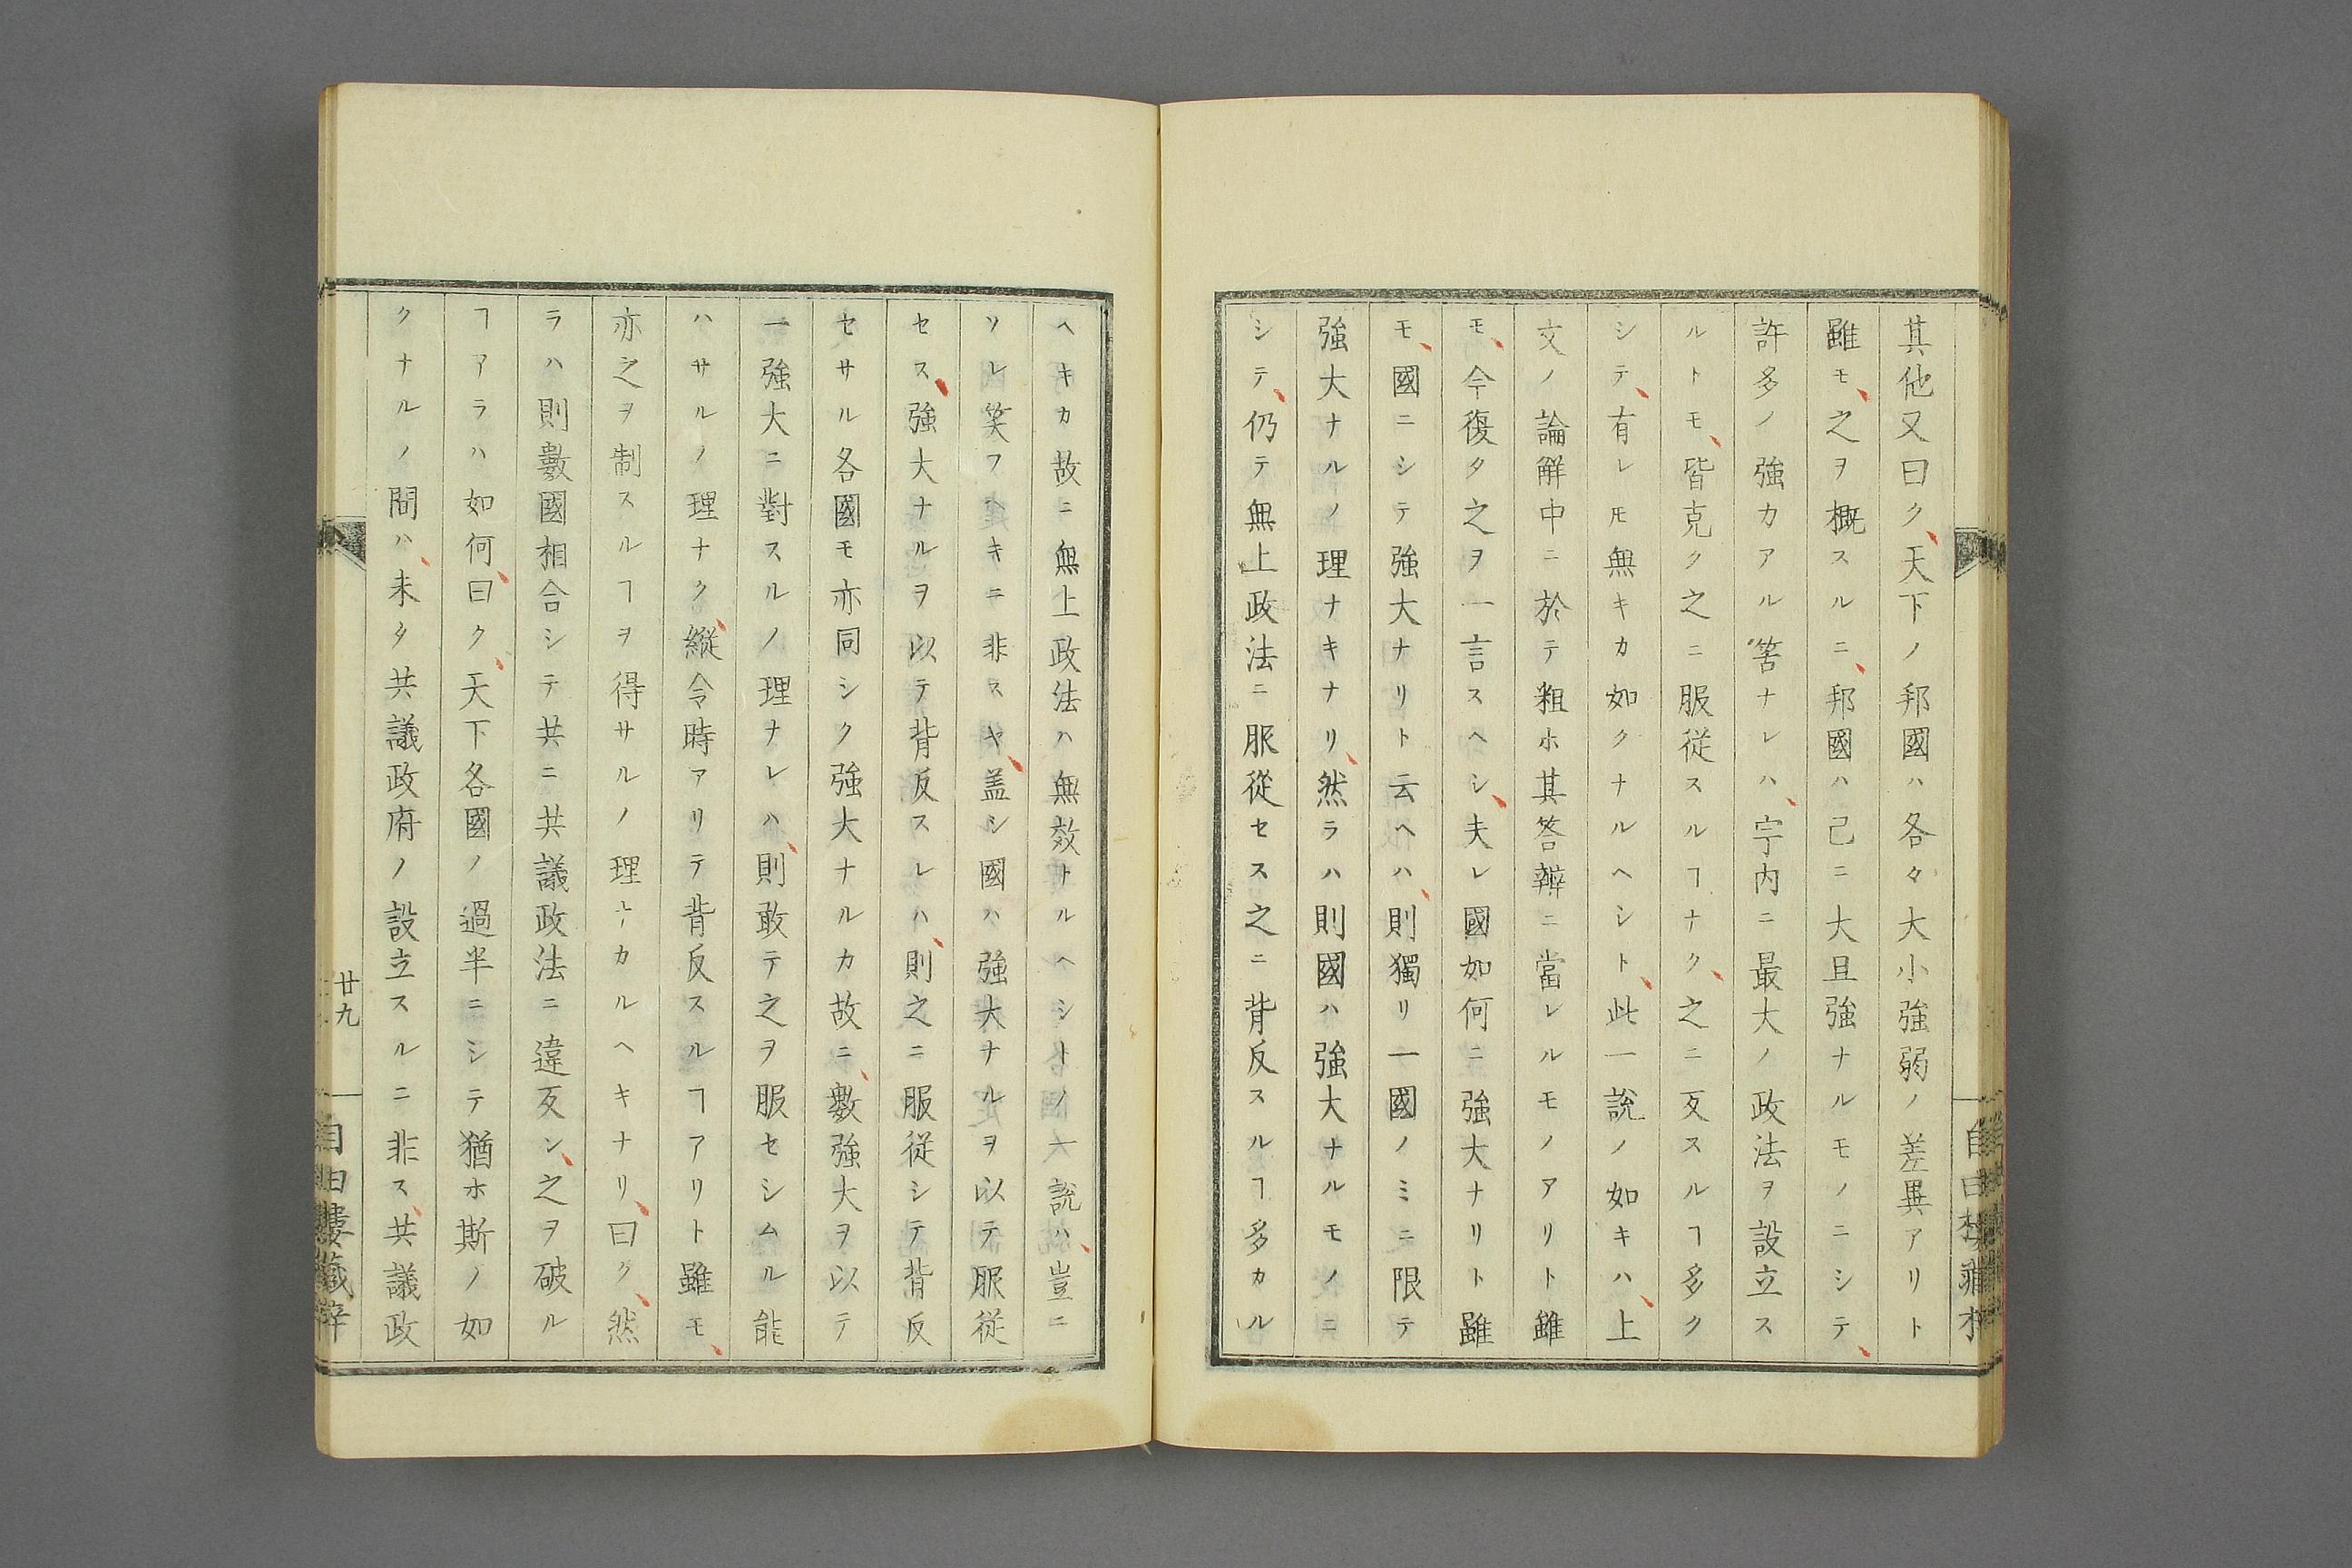 其他又曰ク、天下ノ邦國ハ各々大小強弱ノ差異アリト
雖モ、之ヲ概スルニ、邦國ハ己ニ大且強ナルモノニシテ、
許多ノ強カアル筈ナレハ、宇内ニ最大ノ政法ヲ設立ス
ルトモ、皆克ク之ニ服従スルヿナク、之ニ反スルヿ多ク
シテ、有レ𪜈無キカ如クナルヘシト、此一説ノ如キハ、上
文ノ論解中ニ於テ粗ホ其答辨ニ當レルモノアリト雖
モ、今復タ之ヲ一言スヘシ、夫レ國如何ニ強大ナリト雖
モ、國ニシテ強大ナリト云ヘハ、則獨リ一國ノミニ限テ
強大ナルノ理ナキナリ、然ラハ則國ハ強大ナルモノニ
シテ、仍テ無上政法ニ服從セス之ニ背反スルヿ多カル
ヘキカ故ニ無上政法ハ無效トルヘシトノ説ハ、豈ニ
ソレ笑フヘキニ非スヤ、盖シ國ハ強大ナルヲ以テ服従
セス、強大ナルヲ以テ背反スレハ、則之ニ服従シテ背反
セサル各國モ亦同シク強大ナルカ故ニ、數強大ヲ以テ
一強大ニ對スルノ理ナレハ、則敢テ之ヲ服セシムル能
ハサルノ理ナク、縦令時アリテ背反スルヿアリト雖モ、
亦之ヲ制スルヿヲ得サルノ理ナカルヘキナリ、曰ク、然
ラハ則數國相合シテ共ニ共議政法ニ違反シ、之ヲ破ル
ヿアラハ如何、曰ク、天下各國ノ過半ニシテ猶ホ斯ノ如
クナルノ間ハ、未タ共議政府ノ設立スルニ非ス、共議政
廿九